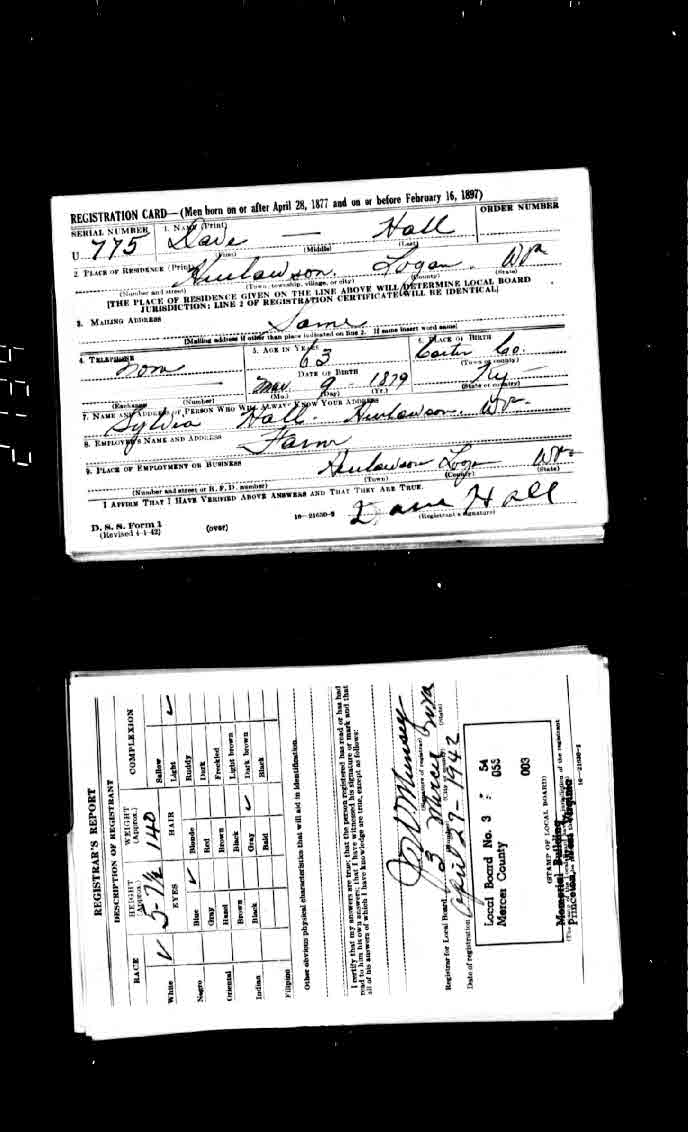 REGISTRATION CARD—(Men born on or after April 28, 1877 and on or before February 16, 1897)
SERIAL NUMBER 1. NAME (Print) ORDER NUMBER
U 775 Dave — Hall
(First) (Middle) (Last)
2. PLACE OF RESIDENCE (Print)
Logan
(Number and street) (Town, township, village, or city) (County) (State)
[THE PLACE OF RESIDENCE GIVEN ON THE LINE ABOVE WILL DETERMINE LOCAL BOARD
JURISDICTION; LINE 2 OF REGISTRATION CERTIFICATE WILL BE IDENTICAL]
3. MAILING ADDRESS
Same
[Mailing address if other than place indicated on line 2. If same insert word same]
4. TELEPHONE 5. AGE IN YEARS 6. PLACE OF BIRTH
63 Carter Co.
DATE OF BIRTH (Town or county)
Mar. 9 - 1879 Ky —
(Exchange) (Number) (Mo.) (Day) (Yr.) (State or country)
7. NAME AND ADDRESS OF PERSON WHO WILL ALWAYS KNOW YOUR ADDRESS
Sylvia Hall.
8. EMPLOYER'S NAME AND ADDRESS
Farm
9. PLACE OF EMPLOYMENT OR BUSINESS
Logan
(Number and street or R. F. D. number) (Town) (County) (State)
I AFFIRM THAT I HAVE VERIFIED ABOVE ANSWERS AND THAT THEY ARE TRUE.
D. S. S. Form 1
(Revised 4-1-42) (over) 16—21630-2 Dave Hall
(Registrant's signature)
REGISTRAR'S REPORT
DESCRIPTION OF REGISTRANT
RACE HEIGHT (Approx.) WEIGHT (Approx.) COMPLEXION
5-7½ 140
White ✓ EYES HAIR Sallow
Light ✓
Negro Blue ✓ Blonde Ruddy
Gray Red Dark
Oriental Hazel Brown Freckled
Brown Black Light brown
Indian Black Gray ✓ Dark brown
Bald Black
Filipino
Other obvious physical characteristics that will aid in identification
I certify that my answers are true; that the person registered has read or has had
read to him his own answers; that I have witnessed his signature or mark and that
all of his answers of which I have knowledge are true, except as follows:
(Signature of registrar)
Registrar for Local Board 3 Mercer
(Number) (City or county) (State)
Date of registration April 27 - 1942
Local Board No. 3 54
Mercer County 055
003
(STAMP OF LOCAL BOARD)
Memorial Building
Princeton, West Virginia
16—21630-1